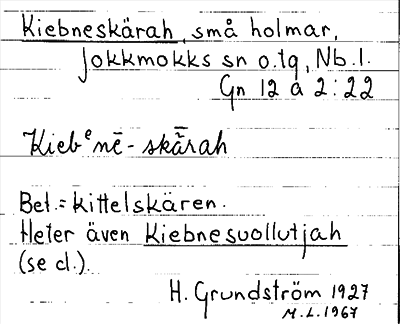 Kiebneskärah, små holmar,
Jokkmokks sn o. tg, Nb. l.
Gn 12 a 2:22
Kiebᵉnē-skā̈rah
Bet. = Kittelskären.
Heter även Kiebnesuollutjah
(se d.).
H. Grundström 1927
M.L. 1967